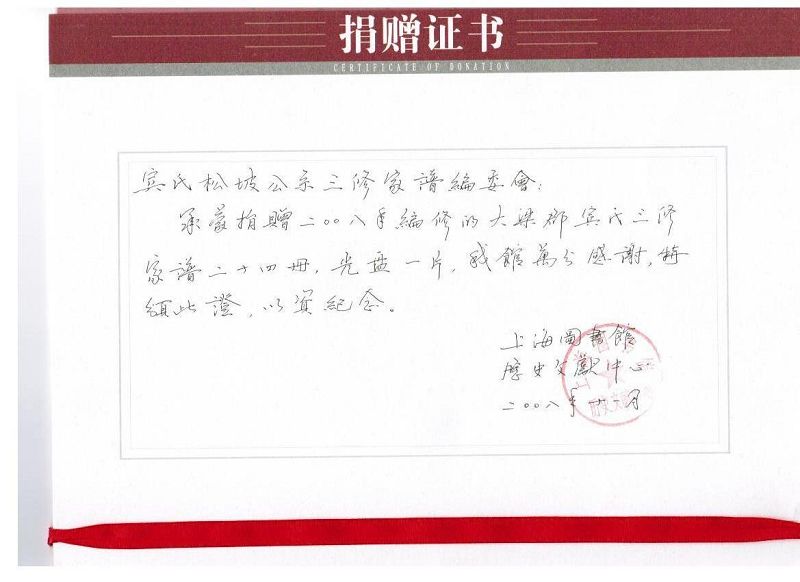 捐赠证书
CERTIFICATE OF DONATION
宾氏松坡公宗三修家譜编委會：
承蒙捐赠二〇〇八年编修的大梁郡宾氏三修
家譜二十四冊，光盘一片，我館萬分感谢，特
頒此證，以資紀念。
上海圖書館
歷史文獻中心
二〇〇八年十二月